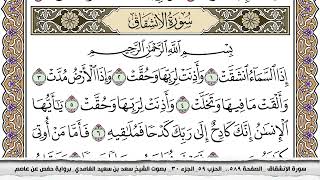 سُورَةُ الانشِقَاقِ
بِسْمِ اللَّهِ الرَّحْمَٰنِ الرَّحِيمِ
إِذَا السَّمَاءُ انشَقَّتْ ١ وَأَذِنَتْ لِرَبِّهَا وَحُقَّتْ ٢ وَإِذَا الْأَرْضُ مُدَّتْ ٣
وَأَلْقَتْ مَا فِيهَا وَتَخَلَّتْ ٤ وَأَذِنَتْ لِرَبِّهَا وَحُقَّتْ ٥ يَا أَيُّهَا
الْإِنسَانُ إِنَّكَ كَادِحٌ إِلَىٰ رَبِّكَ كَدْحًا فَمُلَاقِيهِ ٦ فَأَمَّا مَنْ أُوتِيَ
سورة الانشقاق . الصفحة ٥٨٩ . الحزب ٥٩ . الجزء ٣٠ . بصوت الشيخ سعد بن سعيد الغامدي برواية حفص عن عاصم